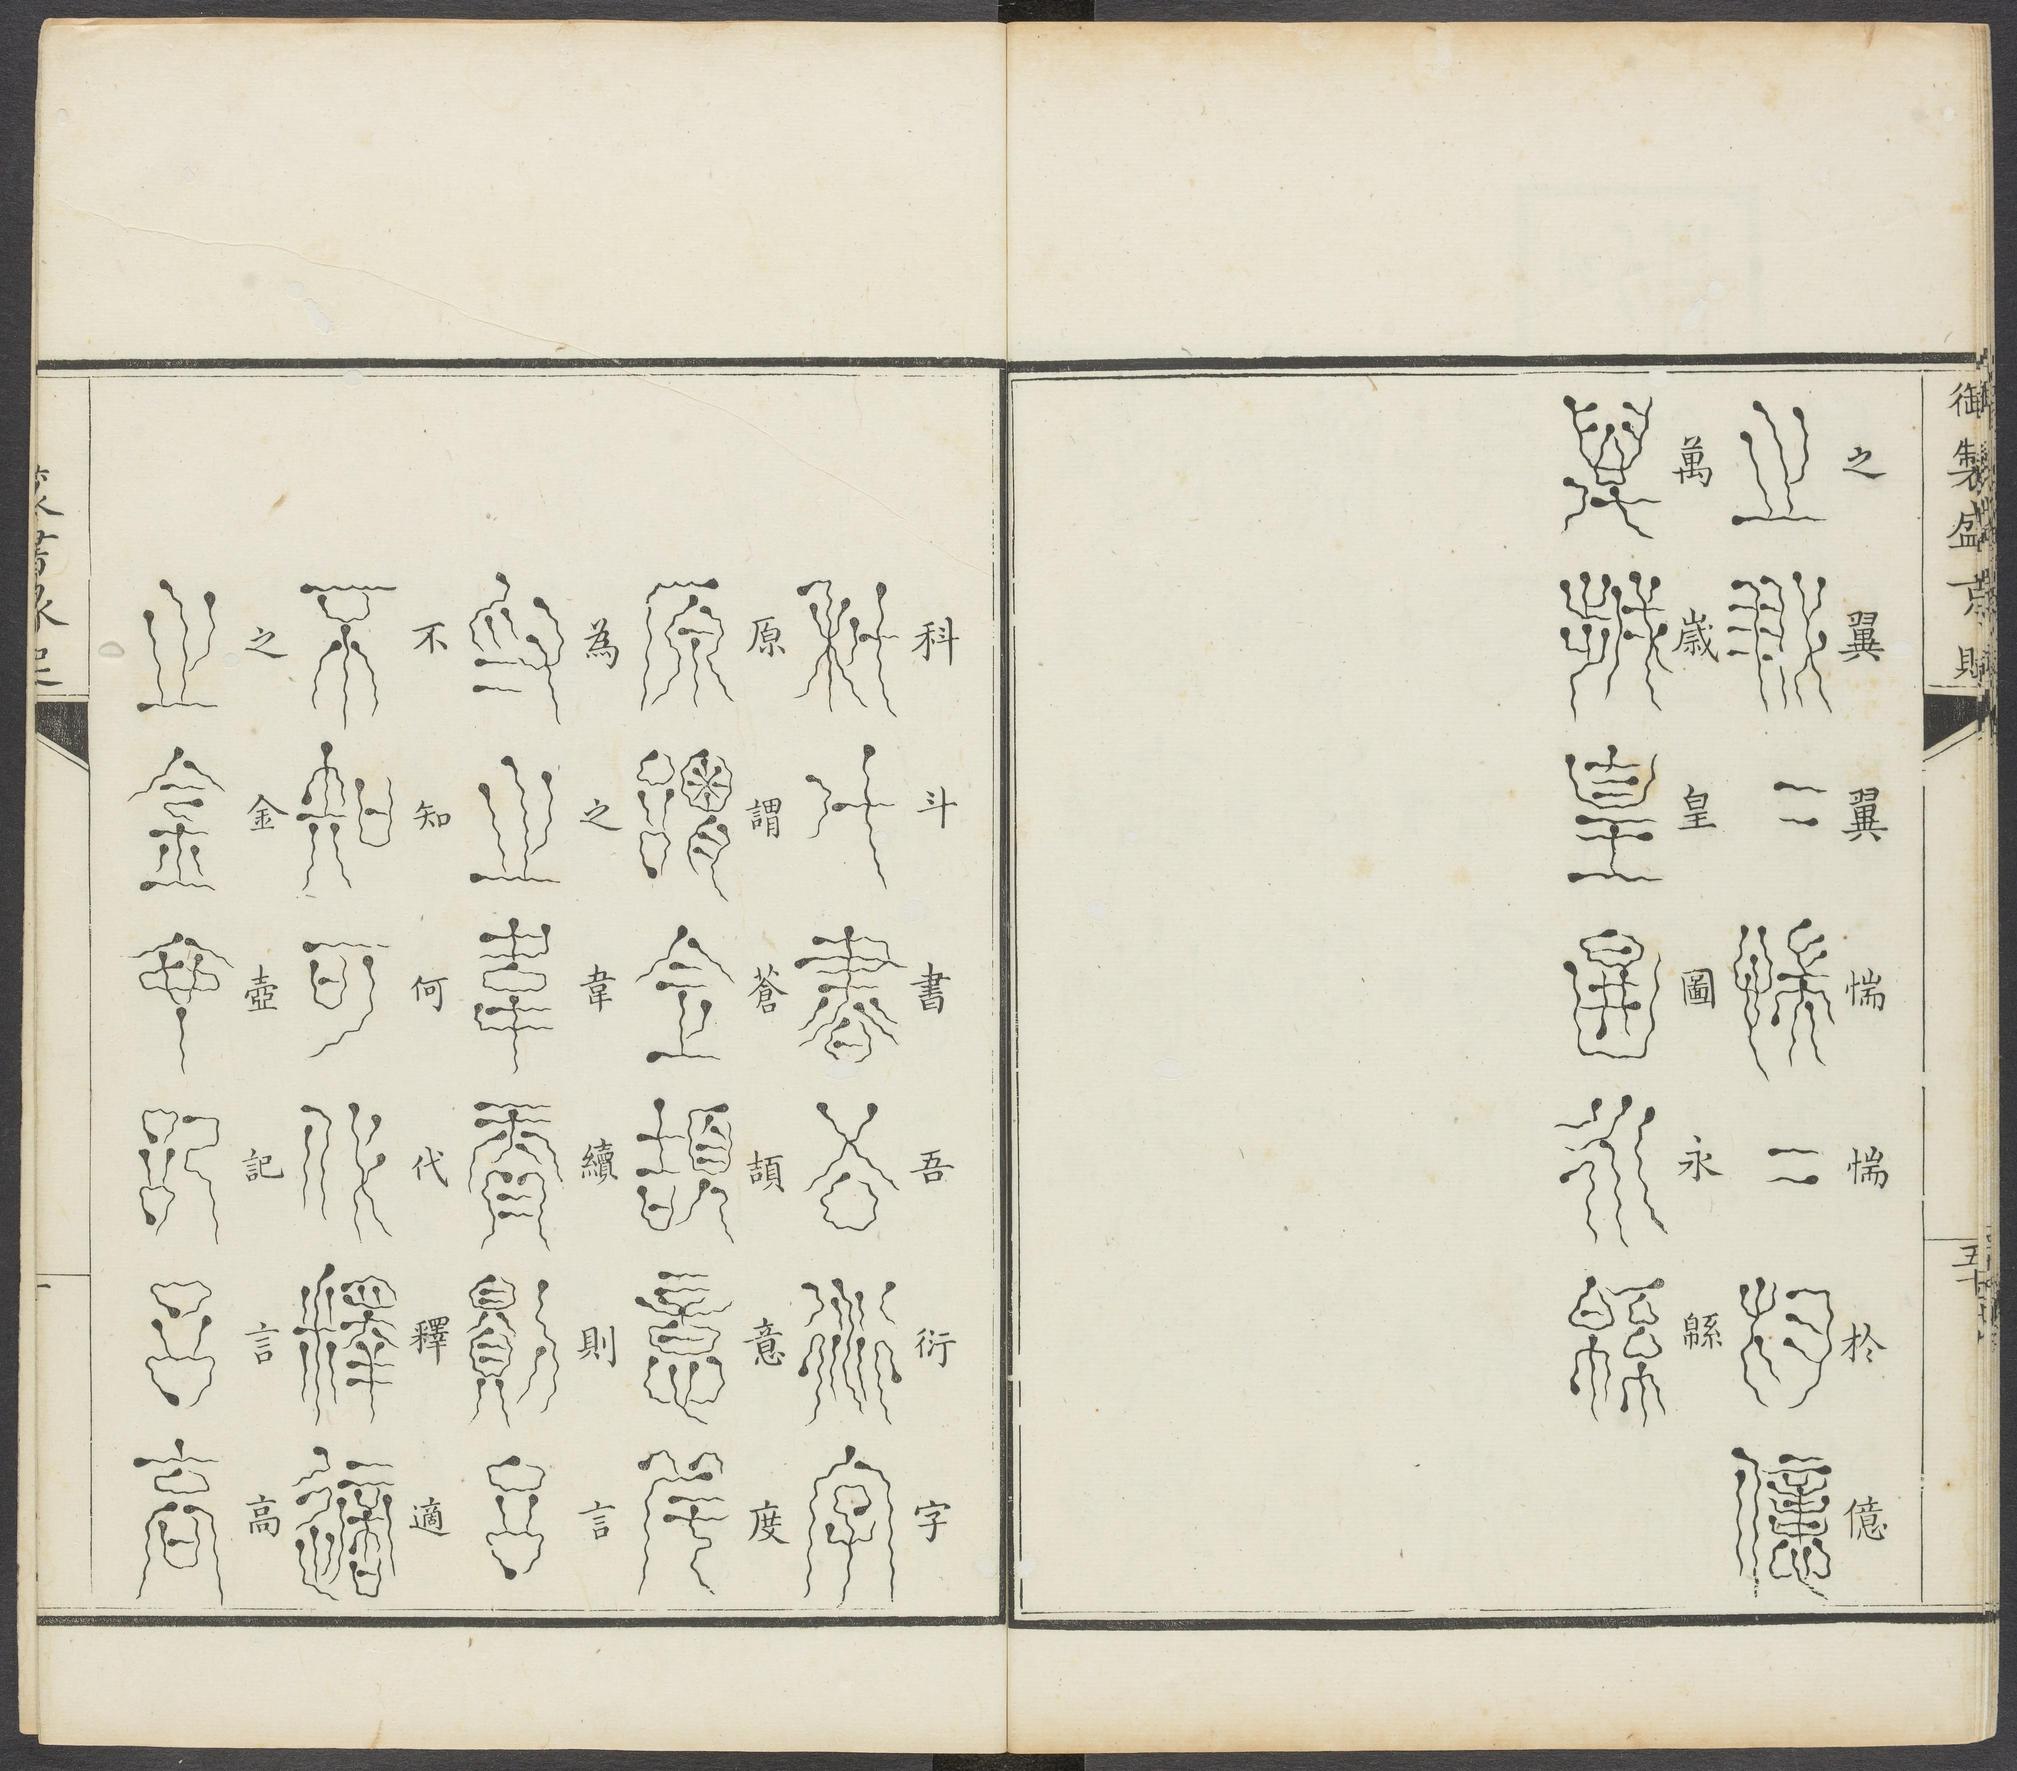 御製盛京賦
之翼翼惴惴於億
萬歲皇圖永緜
五十
科斗書吾衍字
原謂蒼頡意度
為之韋續則言
不知何代釋適
之金壺記言高
篆書緣起